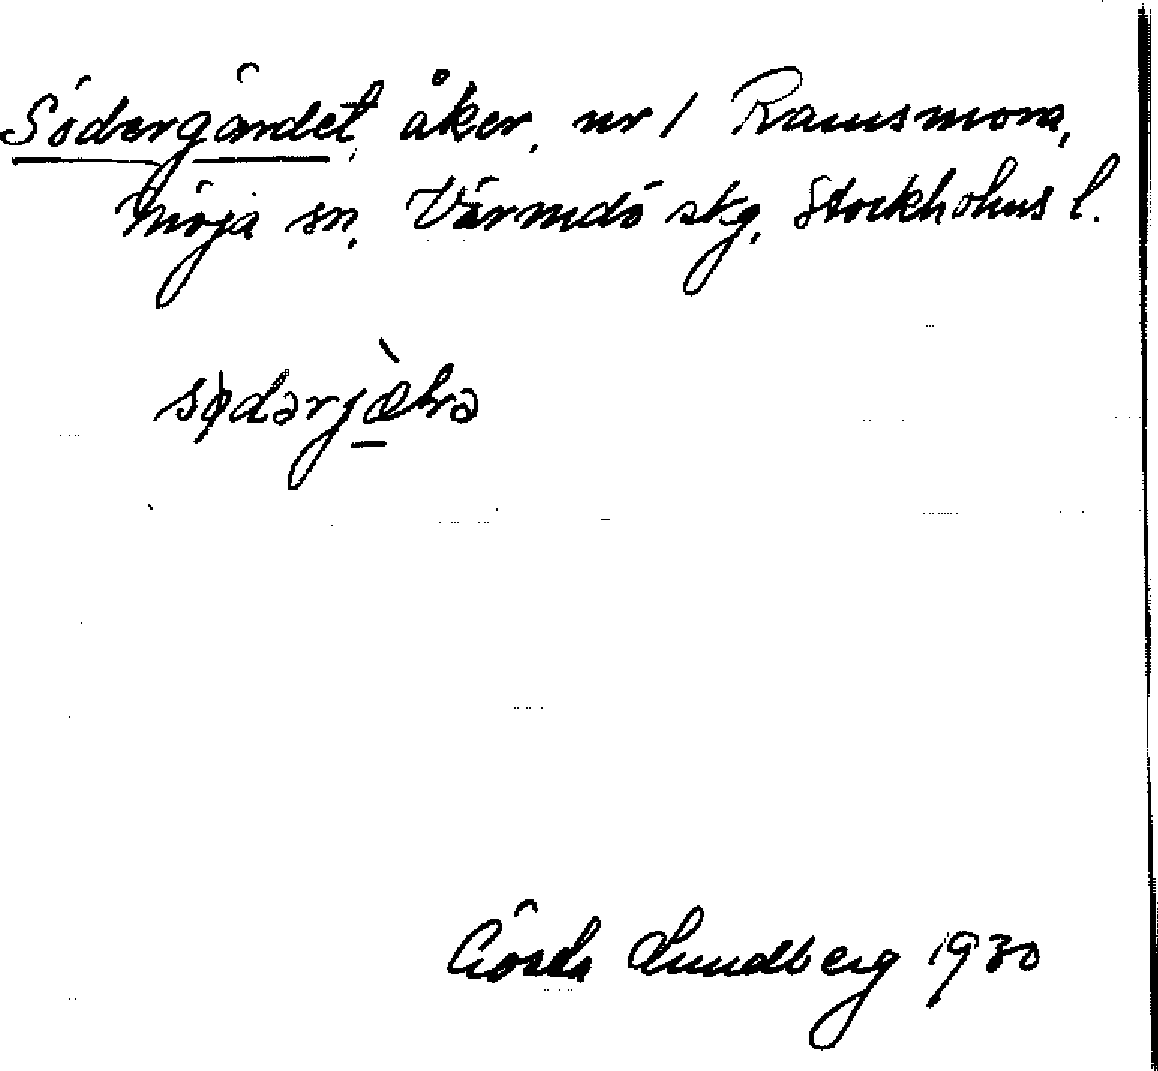 Södergärdet, åker, nr 1 Ramsmora,
Möja sn, Värmdö skg, Stockholms l.
Gösta Lundberg 1930